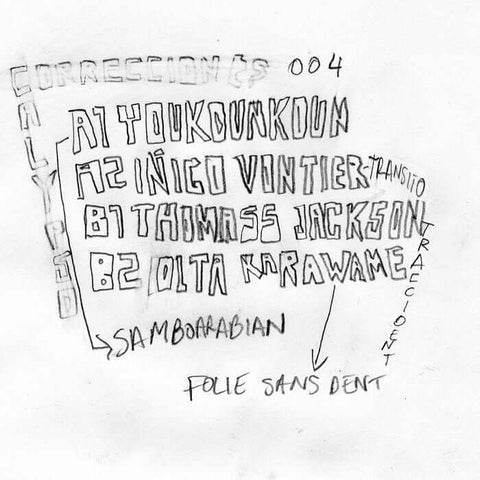 CORRECCIONES 004
CALYPSO
A1 YOUKOUNKOUN
A2 IÑIGO VONTIER TRANSITO
B1 THOMASS JACKSON TRAECIDENT
B2 OLTA KARAWANE
SAMBOARABIAN
FOLIE SANS DENT